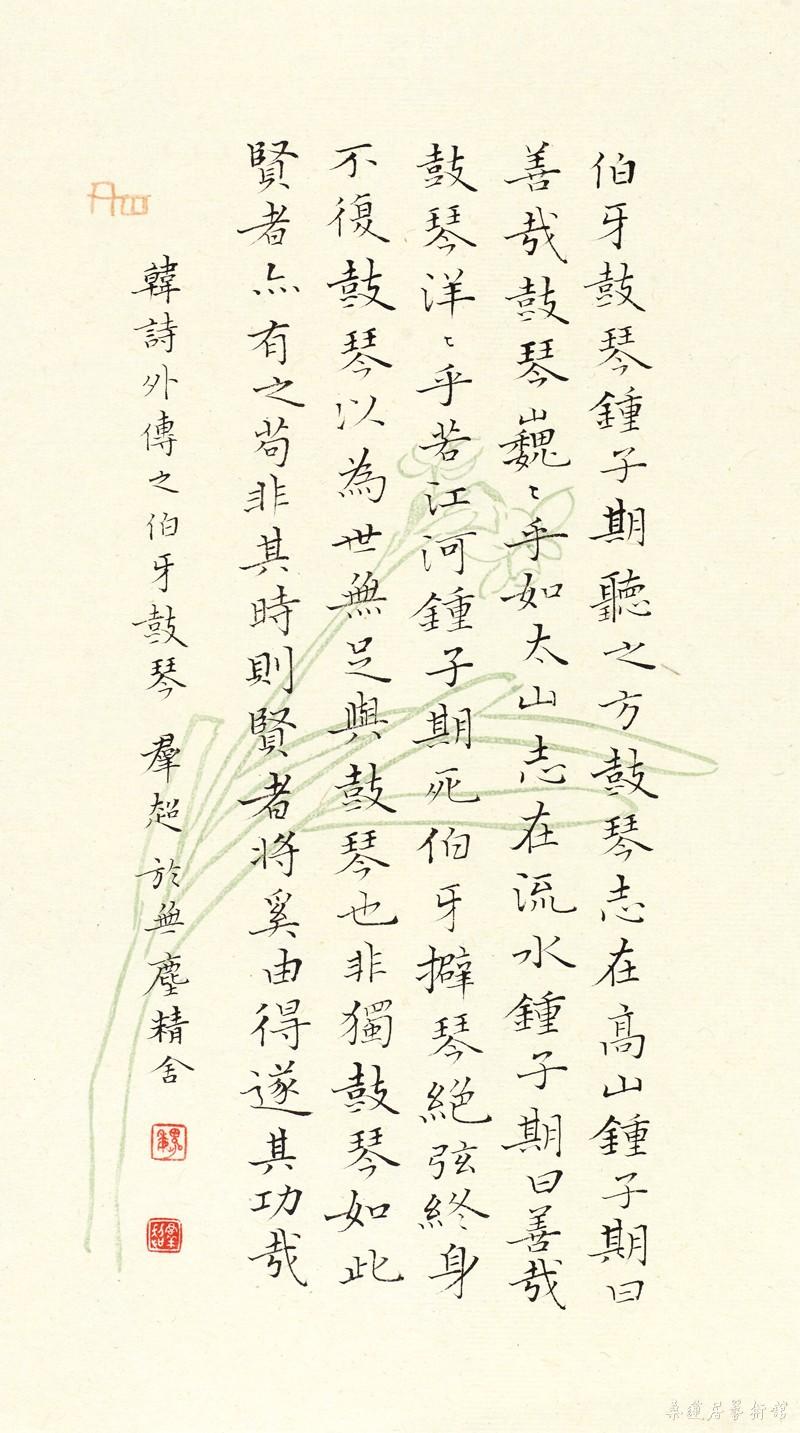 伯牙鼓琴鍾子期聽之方鼓琴志在高山鍾子期曰
善哉鼓琴巍〻乎如太山志在流水鍾子期曰善哉
鼓琴洋〻乎若江河鍾子期死伯牙擗琴絕弦終身
不復鼓琴以為世無足與鼓琴也非獨鼓琴如此
賢者亦有之茍非其時則賢者將奚由得遂其功哉
韓詩外傳之伯牙鼓琴 羣超於無塵精舍